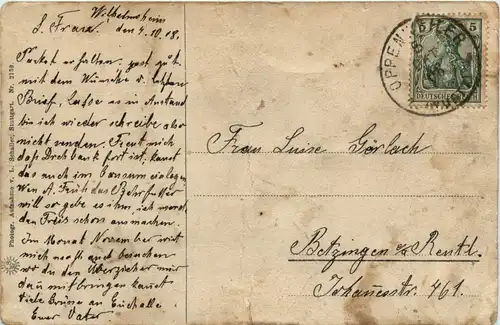 Wilhelmsheim
L. Frau, den 4.10.08.
Packet erhalten, ganz gut
mit dem Wünsche
Brief, lasse es im Anstand
bis ich wieder schreibe also
nicht senden. Freut mich
daß Drehbank fort ist, kanst
das auch im Consum einlegen
will so gebe es ihm, ich werd
den Preis schon ausmachen.
Im Monat November wirst
mich wohl auch besuchen
wo du den Überzieher mir
dan mitbringen kanst
viele Grüsse an Euch alle
Euer Vater
Photogr. Aufnahme v. L. Schaller, Stuttgart. Nr. 2139.
5 5
DEUTSCHES
OPPENWEILER
Frau Luise Görlach
Betzingen o/a Reutl.
Johannesstr. 461.